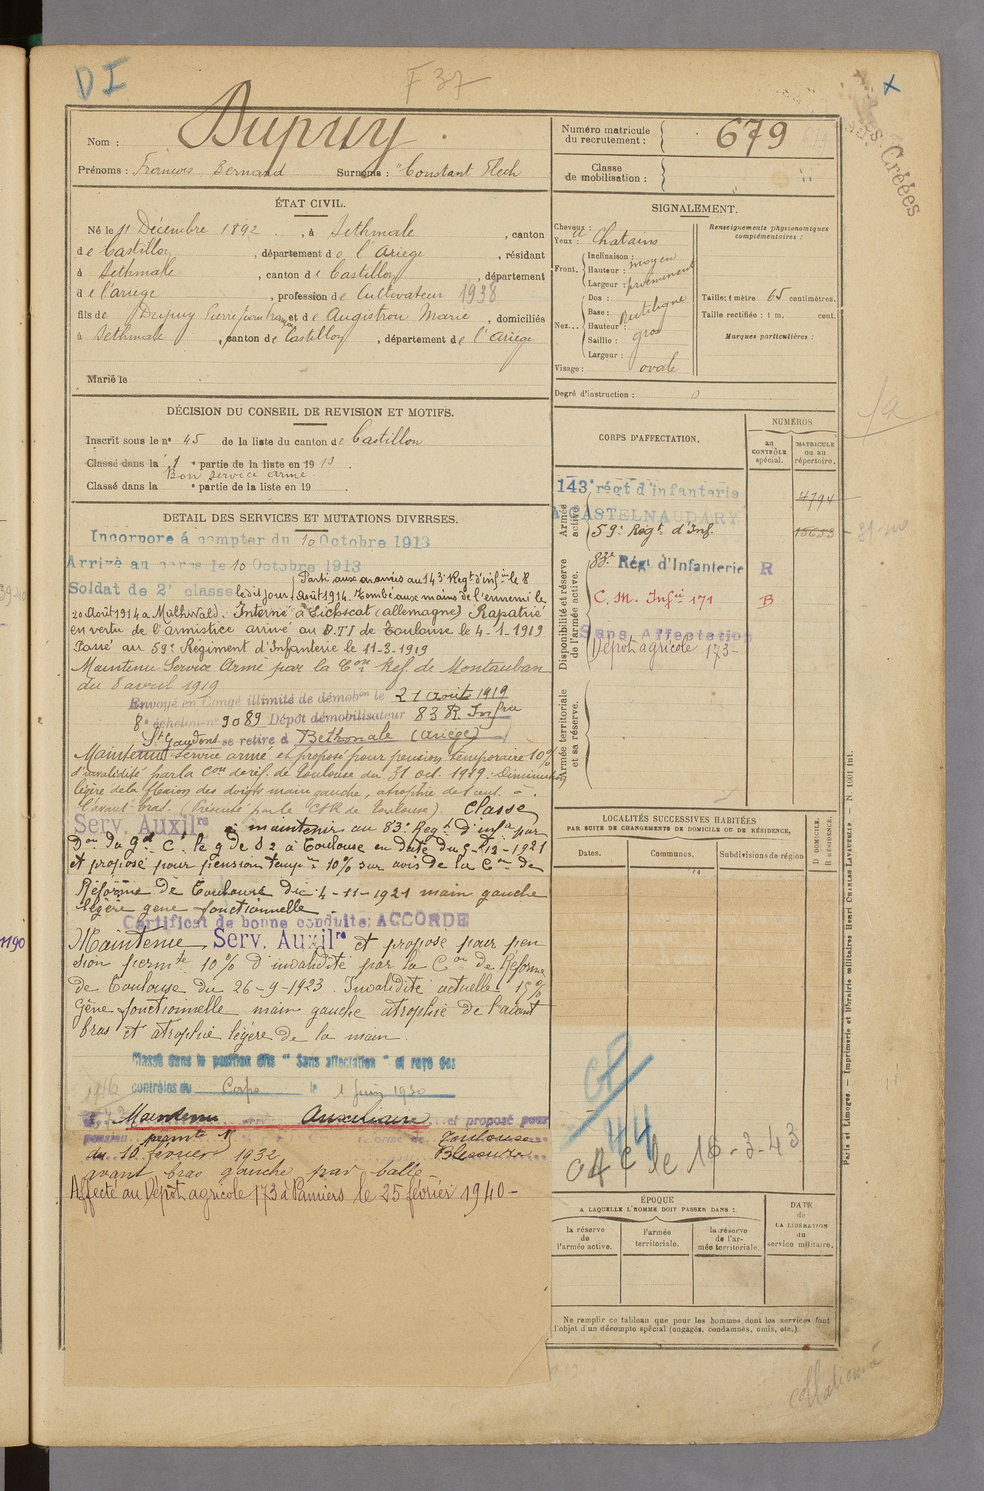 D I
F 37
Nom : Dupuy
Prénoms : François Bernard Surnoms : "Constant Flech
Numéro matricule du recrutement : 679
Classe de mobilisation :
ÉTAT CIVIL.
Né le 11 Décembre 1892, à Sethmale, canton
de Castillon, département de l'Ariège, résidant
à Sethmale, canton de Castillon, département
de l'ariege, profession de Cultivateur 1938
fils de Dupuy Pierre Jean et de Augistrou Marie, domiciliés
à Sethmale, canton de Castillon, département de l'Ariège
Marié le
SIGNALEMENT.
Cheveux :
Yeux : Chatains
Front. Inclinaison : moyen
Hauteur :
Largeur : proéminent
Nez... Dos : Rectiligne
Base :
Hauteur : gros
Saillie :
Largeur :
Visage : ovale
Renseignements physionomiques complémentaires :
Taille : 1 mètre 65 centimètres.
Taille rectifiée : 1 m. cent.
Marques particulières :
Degré d'instruction :
DÉCISION DU CONSEIL DE REVISION ET MOTIFS.
Inscrit sous le n° 45 de la liste du canton de Castillon
Classé dans la 1e partie de la liste en 1913.
Bon service armé
Classé dans la e partie de la liste en 19
DETAIL DES SERVICES ET MUTATIONS DIVERSES.
Incorporé à compter du 10 Octobre 1913
Arrivé au corps le 10 Octobre 1913
Soldat de 2e classe le dit jour. Parti aux armées au 143e Regt d'infie le 8
Août 1914. Tombé aux mains de l'ennemi le
20 Août 1914 a Mulhwald. Interné à (allemagne) Rapatrié
en vertu de l'armistice arrivé au D.T.I de Toulouse le 4-1-1919
Passé au 59e Régiment d'Infanterie le 11-3-1919
Maintenu Service Armé par la Con Ref. de Montauban
du 8 avril 1919
Envoyé en Congé illimité de démobon le 21 août 1919
8e échelon n° 9089 Dépôt démobilisateur 83 R. Infie
St Gaudens se retire à Bethmale (Ariège)
Maintenu service armé et proposé pour pension temporaire 10%
d'invalidité par la Con de réf. de Toulouse du 31 oct. 1919. Diminution
légère de la flexion des doigts main gauche, atrophie de 1 cent. à
l'avant bras. (Présenté par le CSR de Toulouse). Classé
Serv. Auxilre à maintenir au 83e Regt d'Infie par
Don du Gal Ct le g de S 2 à Toulouse en date du 5-12-1921
et proposé pour pension tempre 10% sur avis de la Con de
Réforme de Toulouse du 4-11-1921 main gauche
légère gêne fonctionnelle
Certificat de bonne conduite: ACCORDÉ
Maintenu Serv. Auxilre et proposé pour pen
sion permte 10% d'invalidité par la Con de Réforme
de Toulouse du 26-9-1923. Invalidité actuelle 15%
Gêne fonctionnelle main gauche atrophie de l'avant
bras et atrophie légère de la main.
Classé dans la position dite "Sans affectation" et rayé des
contrôles du Corps le 1 Juin 1930
Maintenu Auxiliaire et proposé pour
pension permte Toulouse
du 10 février 1932 Blessure
avant bras gauche par balle
Affecté au Dépôt agricole 173 à Pamiers le 25 février 1940-
CORPS D'AFFECTATION.
NUMÉROS
au CONTRÔLE spécial.
MATRICULE ou au répertoire.
Armée active.
143e régt d'infanterie 4794
A CASTELNAUDARY
59e Regt d'Inf.
Disponibilité et réserve de l'armée active.
83e Régt d'Infanterie R
C. M. Infie 171 B
Sans Affectation
Dépôt agricole 173-
Armée territoriale et sa réserve.
LOCALITÉS SUCCESSIVES HABITÉES
PAR SUITE DE CHANGEMENTS DE DOMICILE OU DE RÉSIDENCE.
Dates. Communes. Subdivisions de région D DOMICILE. R RÉSIDENCE.
44
de 16-3-43
ÉPOQUE
A LAQUELLE L'HOMME DOIT PASSER DANS :
la réserve de l'armée active.
l'armée territoriale.
la réserve de l'armée territoriale
DATE de LA LIBÉRATION du service militaire.
Ne remplir ce tableau que pour les hommes dont les services font
l'objet d'un décompte spécial (engagés, condamnés, omis, etc.)
Paris et Limoges. — Imprimerie et librairie militaires Henri CHARLES-LAVAUZELLE
Collationné
1190